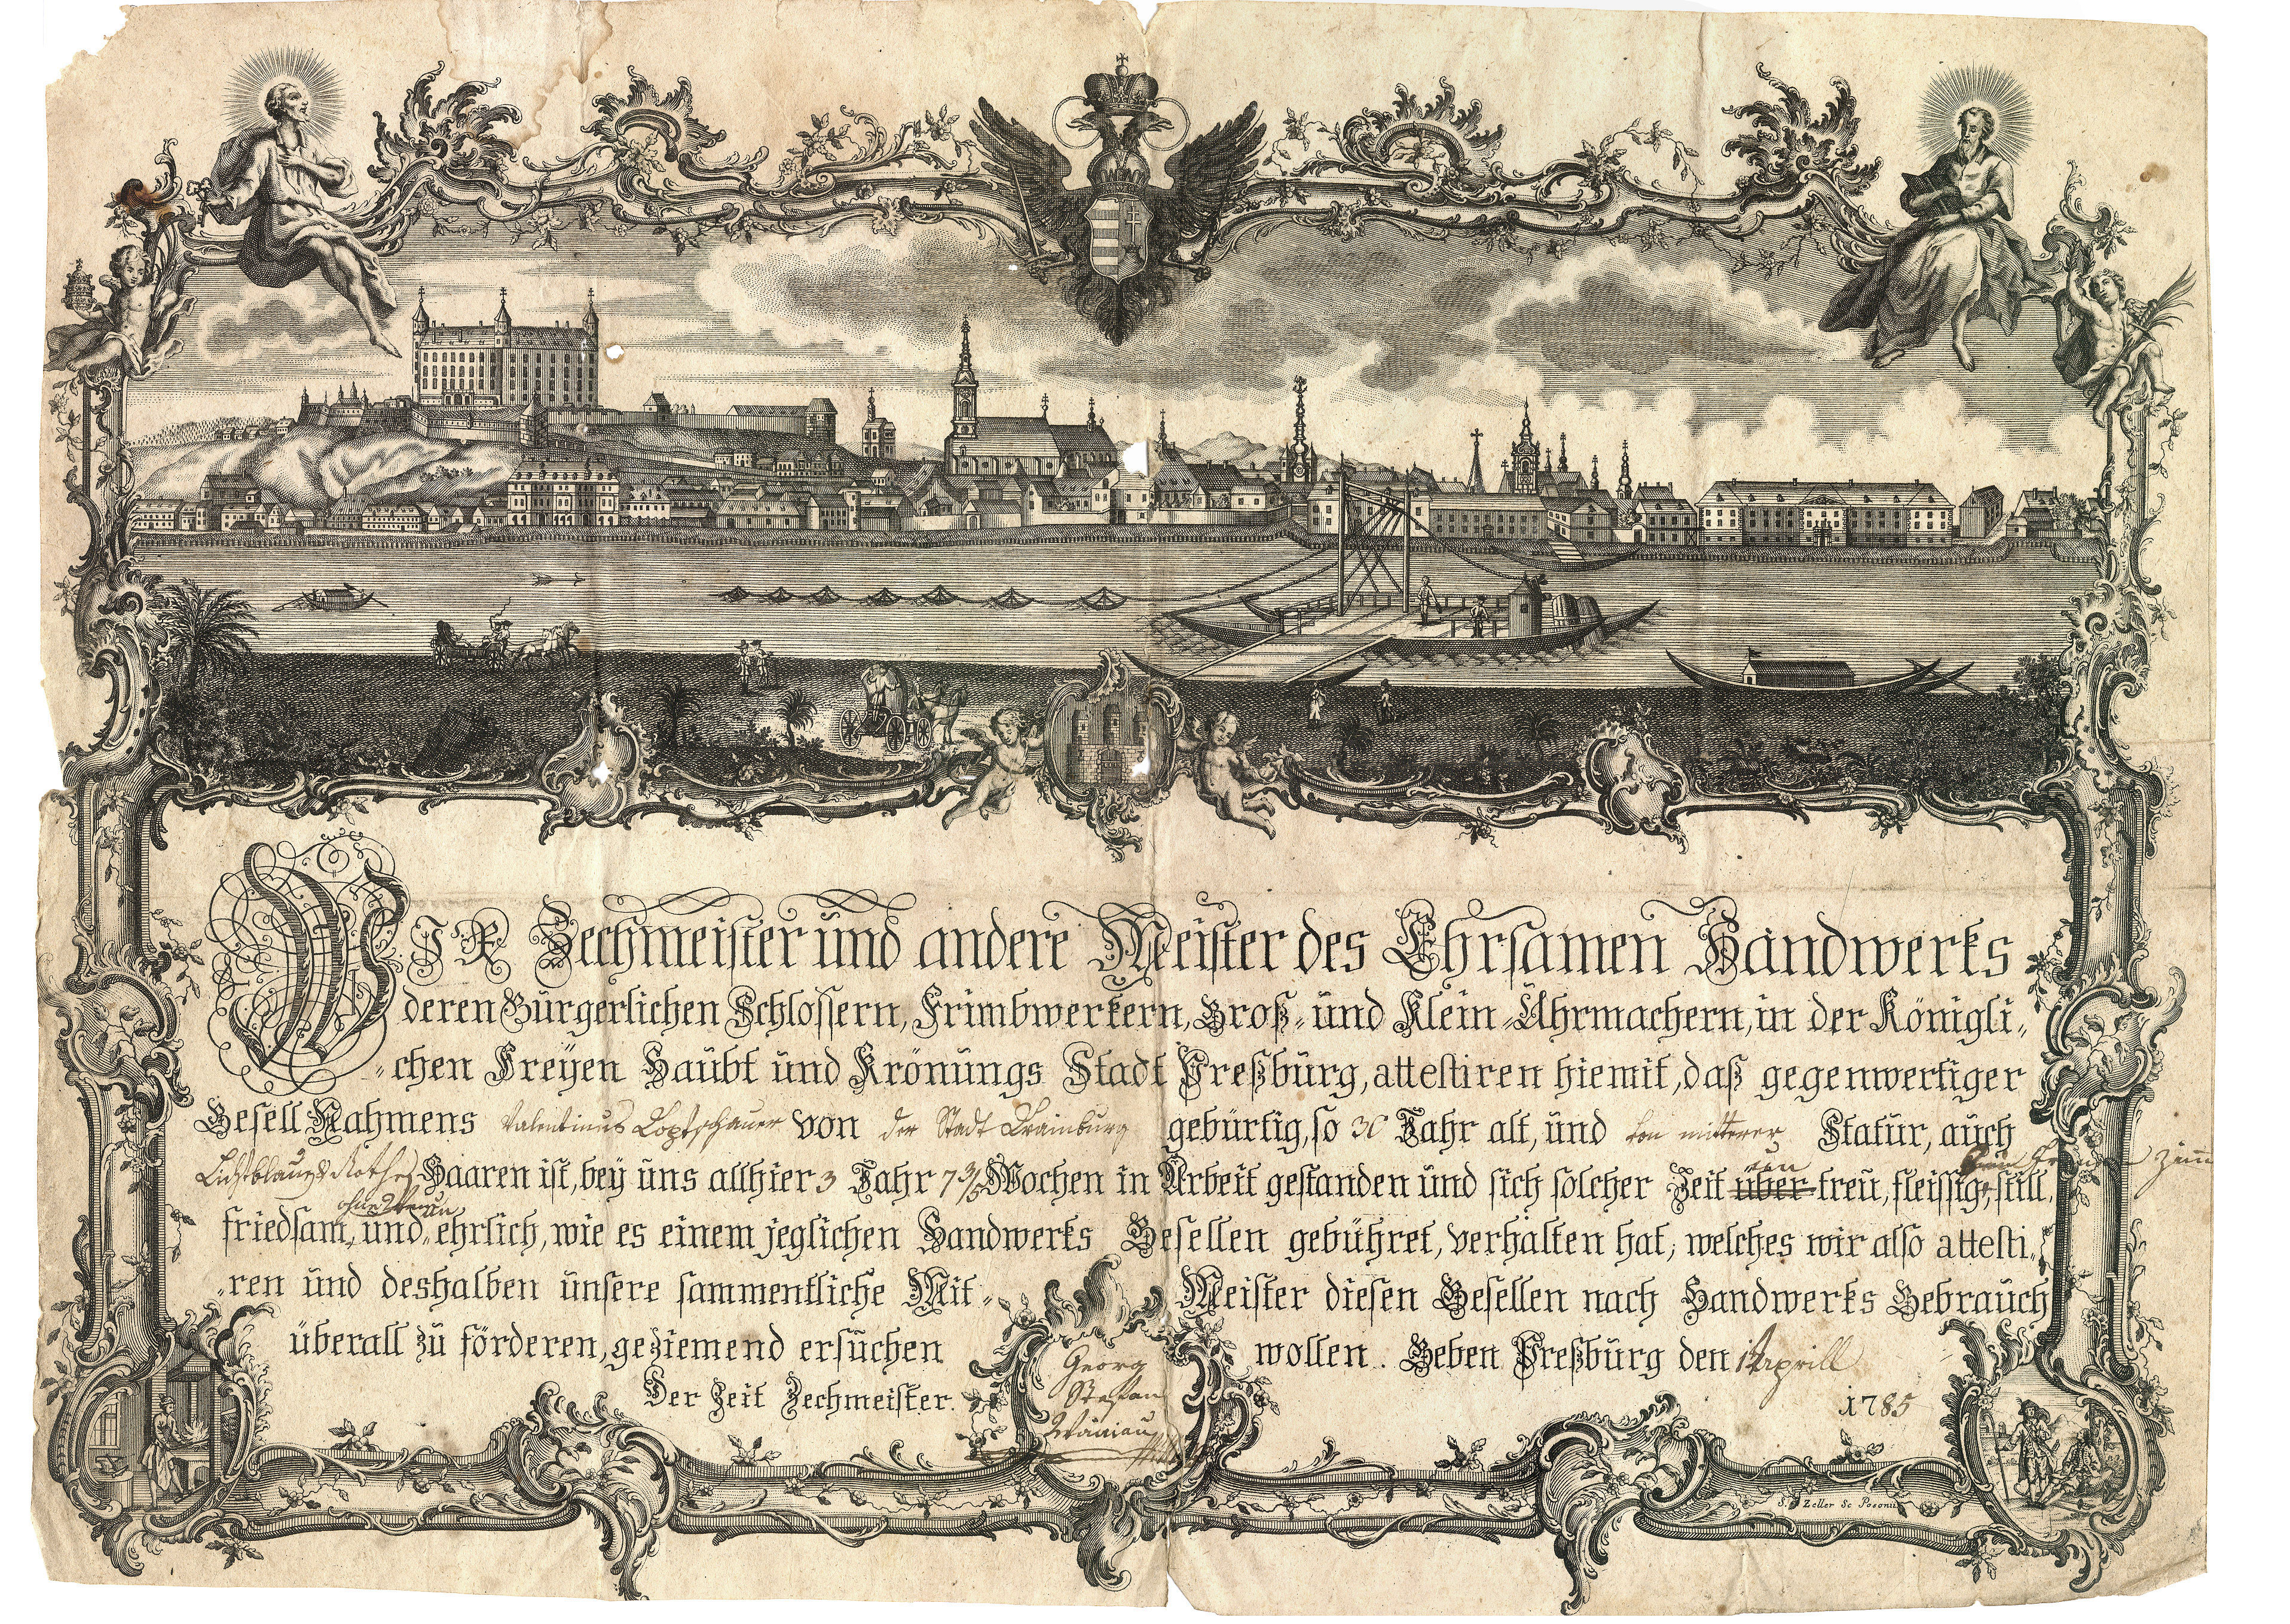 WIR Zechmeister und andere Meister des Ehrsamen Handwerks
deren Bürgerlichen Schlossern, Frimbwerkern, Groß- und Klein-Uhrmachern, in der Königli-
-chen Freyen Haubt und Krönungs Stadt Preßburg, attestiren hiemit, daß gegenwertiger
Gesell Nahmens Valentinus von der Stadt Crainburg gebürtig, so 30 Jahr alt, und von mitterer Statur, auch
Haaren ist, bey uns allhier 3 Jahr 7 Wochen in Arbeit gestanden und sich solcher Zeit über treu, fleissig, still,
friedsam, und ehrlich, wie es einem jeglichen Handwerks Gesellen gebühret, verhalten hat, welches wir also attesti-
-ren und deshalben unsere sammentliche Mit- Meister diesen Gesellen nach Handwerks Gebrauch
überall zu förderen, geziemend ersuchen wollen. Geben Preßburg den 1 Aprill
1785
Der Zeit Zechmeister.
Georg
Stefan
S. Zeller Sc Posonii